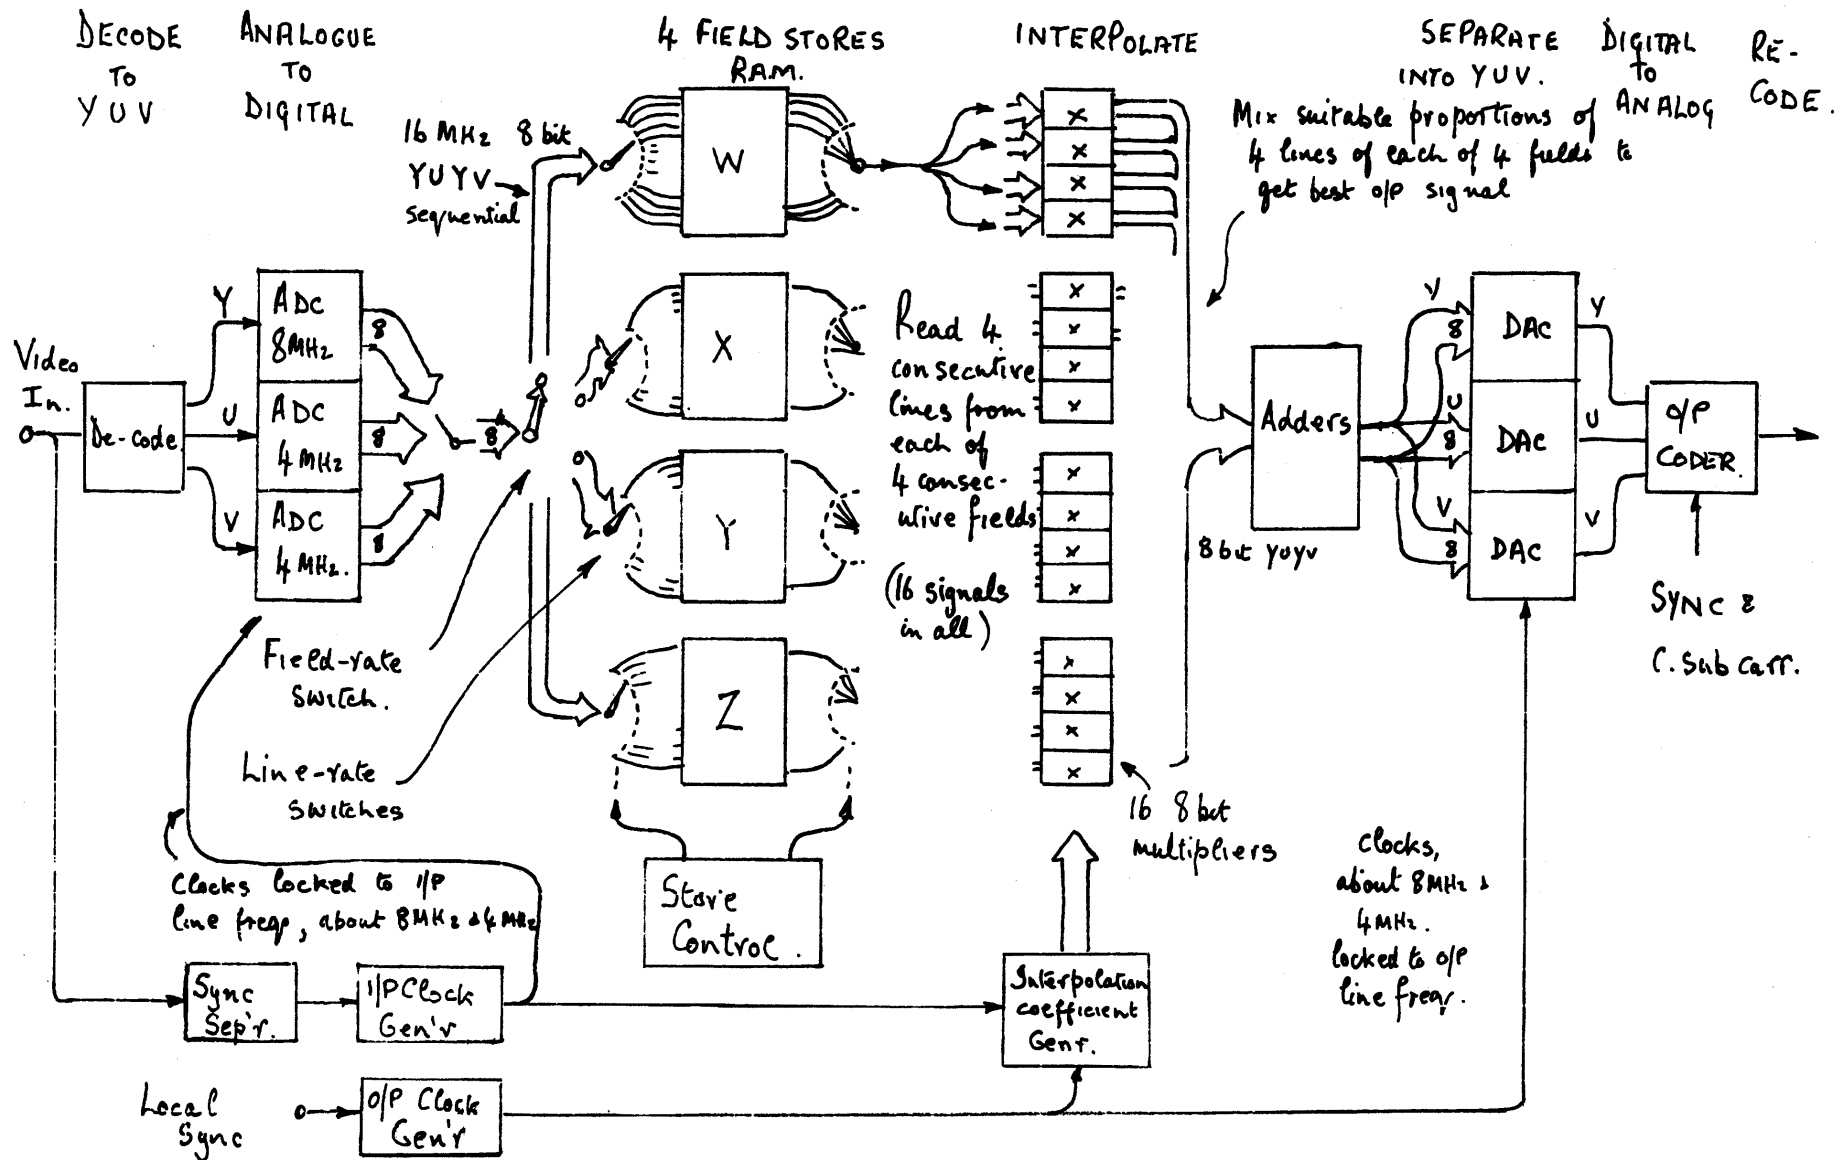 DECODE
TO
YUV
ANALOGUE
TO
DIGITAL
4 FIELD STORES
R.A.M.
INTERPOLATE
SEPARATE
INTO YUV.
DIGITAL
to
ANALOG
RE-
CODE.
16 MHz 8 bit
YUYV
sequential
Mix suitable proportions of
4 lines of each of 4 fields to
get best o/p signal
W
x
x
x
x
Video
In.
De-code
Y
U
V
ADC
8MHz
ADC
4MHz
ADC
4MHz.
8
8
8
8
X
Y
Z
Read 4
consecutive
lines from
each of
4 consec-
utive fields
(16 signals
in all)
x
x
x
x
x
x
x
x
x
x
x
x
Adders
8 bit YUYV
Y
8
U
8
V
8
DAC
DAC
DAC
Y
U
V
O/P
CODER.
SYNC &
C. Sub carr.
Field-rate
switch.
Line-rate
switches
16 8 bit
multipliers
Clocks locked to I/P
line freqy, about 8MHz & 4MHz
Store
Control.
Clocks,
about 8MHz &
4MHz.
locked to O/P
line freqy.
Sync
Sep'r.
I/P Clock
Gen'r
Interpolation
coefficient
Genr.
Local
Sync
O/P Clock
Gen'r